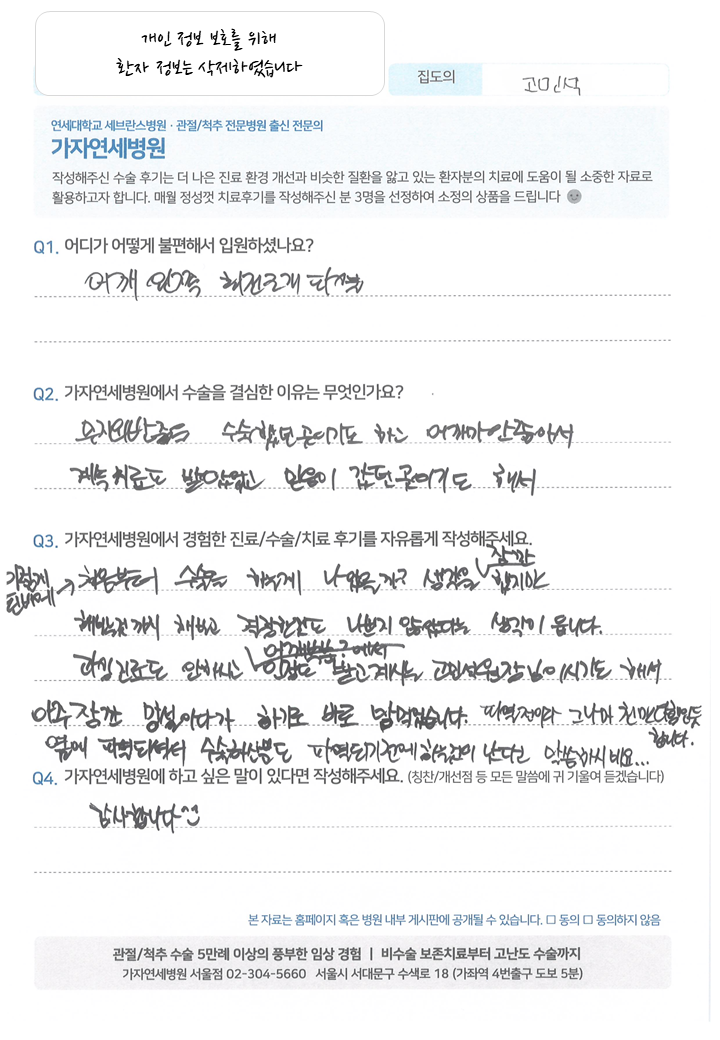 개인 정보 보호를 위해
환자 정보는 삭제하였습니다
집도의 고민석
연세대학교 세브란스병원 · 관절/척추 전문병원 출신 전문의
가자연세병원
작성해주신 수술 후기는 더 나은 진료 환경 개선과 비슷한 질환을 앓고 있는 환자분의 치료에 도움이 될 소중한 자료로
활용하고자 합니다. 매월 정성껏 치료후기를 작성해주신 분 3명을 선정하여 소정의 상품을 드립니다
Q1. 어디가 어떻게 불편해서 입원하셨나요?
어깨 왼쪽 회전근개 파열
Q2. 가자연세병원에서 수술을 결심한 이유는 무엇인가요?
수술했던곳이기도 하고 어깨가 안좋아서
계속 치료도 받아왔었고 믿음이 갔던곳이기도 해서
Q3. 가자연세병원에서 경험한 진료/수술/치료 후기를 자유롭게 작성해주세요.
잠깐
처음부터 수술을 하는게 나았을까? 생각을 했지만
해볼것까지 해보고 결정한것도 나쁘지 않았다는 생각이 듭니다.
과잉진료도 안하시고 인정도 받고계시는 고민석원장님이시기도 해서
아주 잠깐 망설이다가 하기로 바로 맘먹었습니다.
옆에 파열되셔서 수술하신분도 파열되기전에 하는것이 낫다고 말씀하시네요...
합니다.
Q4. 가자연세병원에 하고 싶은 말이 있다면 작성해주세요. (칭찬/개선점 등 모든 말씀에 귀 기울여 듣겠습니다)
감사합니다^^
본 자료는 홈페이지 혹은 병원 내부 게시판에 공개될 수 있습니다. □ 동의 □ 동의하지 않음
관절/척추 수술 5만례 이상의 풍부한 임상 경험 | 비수술 보존치료부터 고난도 수술까지
가자연세병원 서울점 02-304-5660 서울시 서대문구 수색로 18 (가좌역 4번출구 도보 5분)